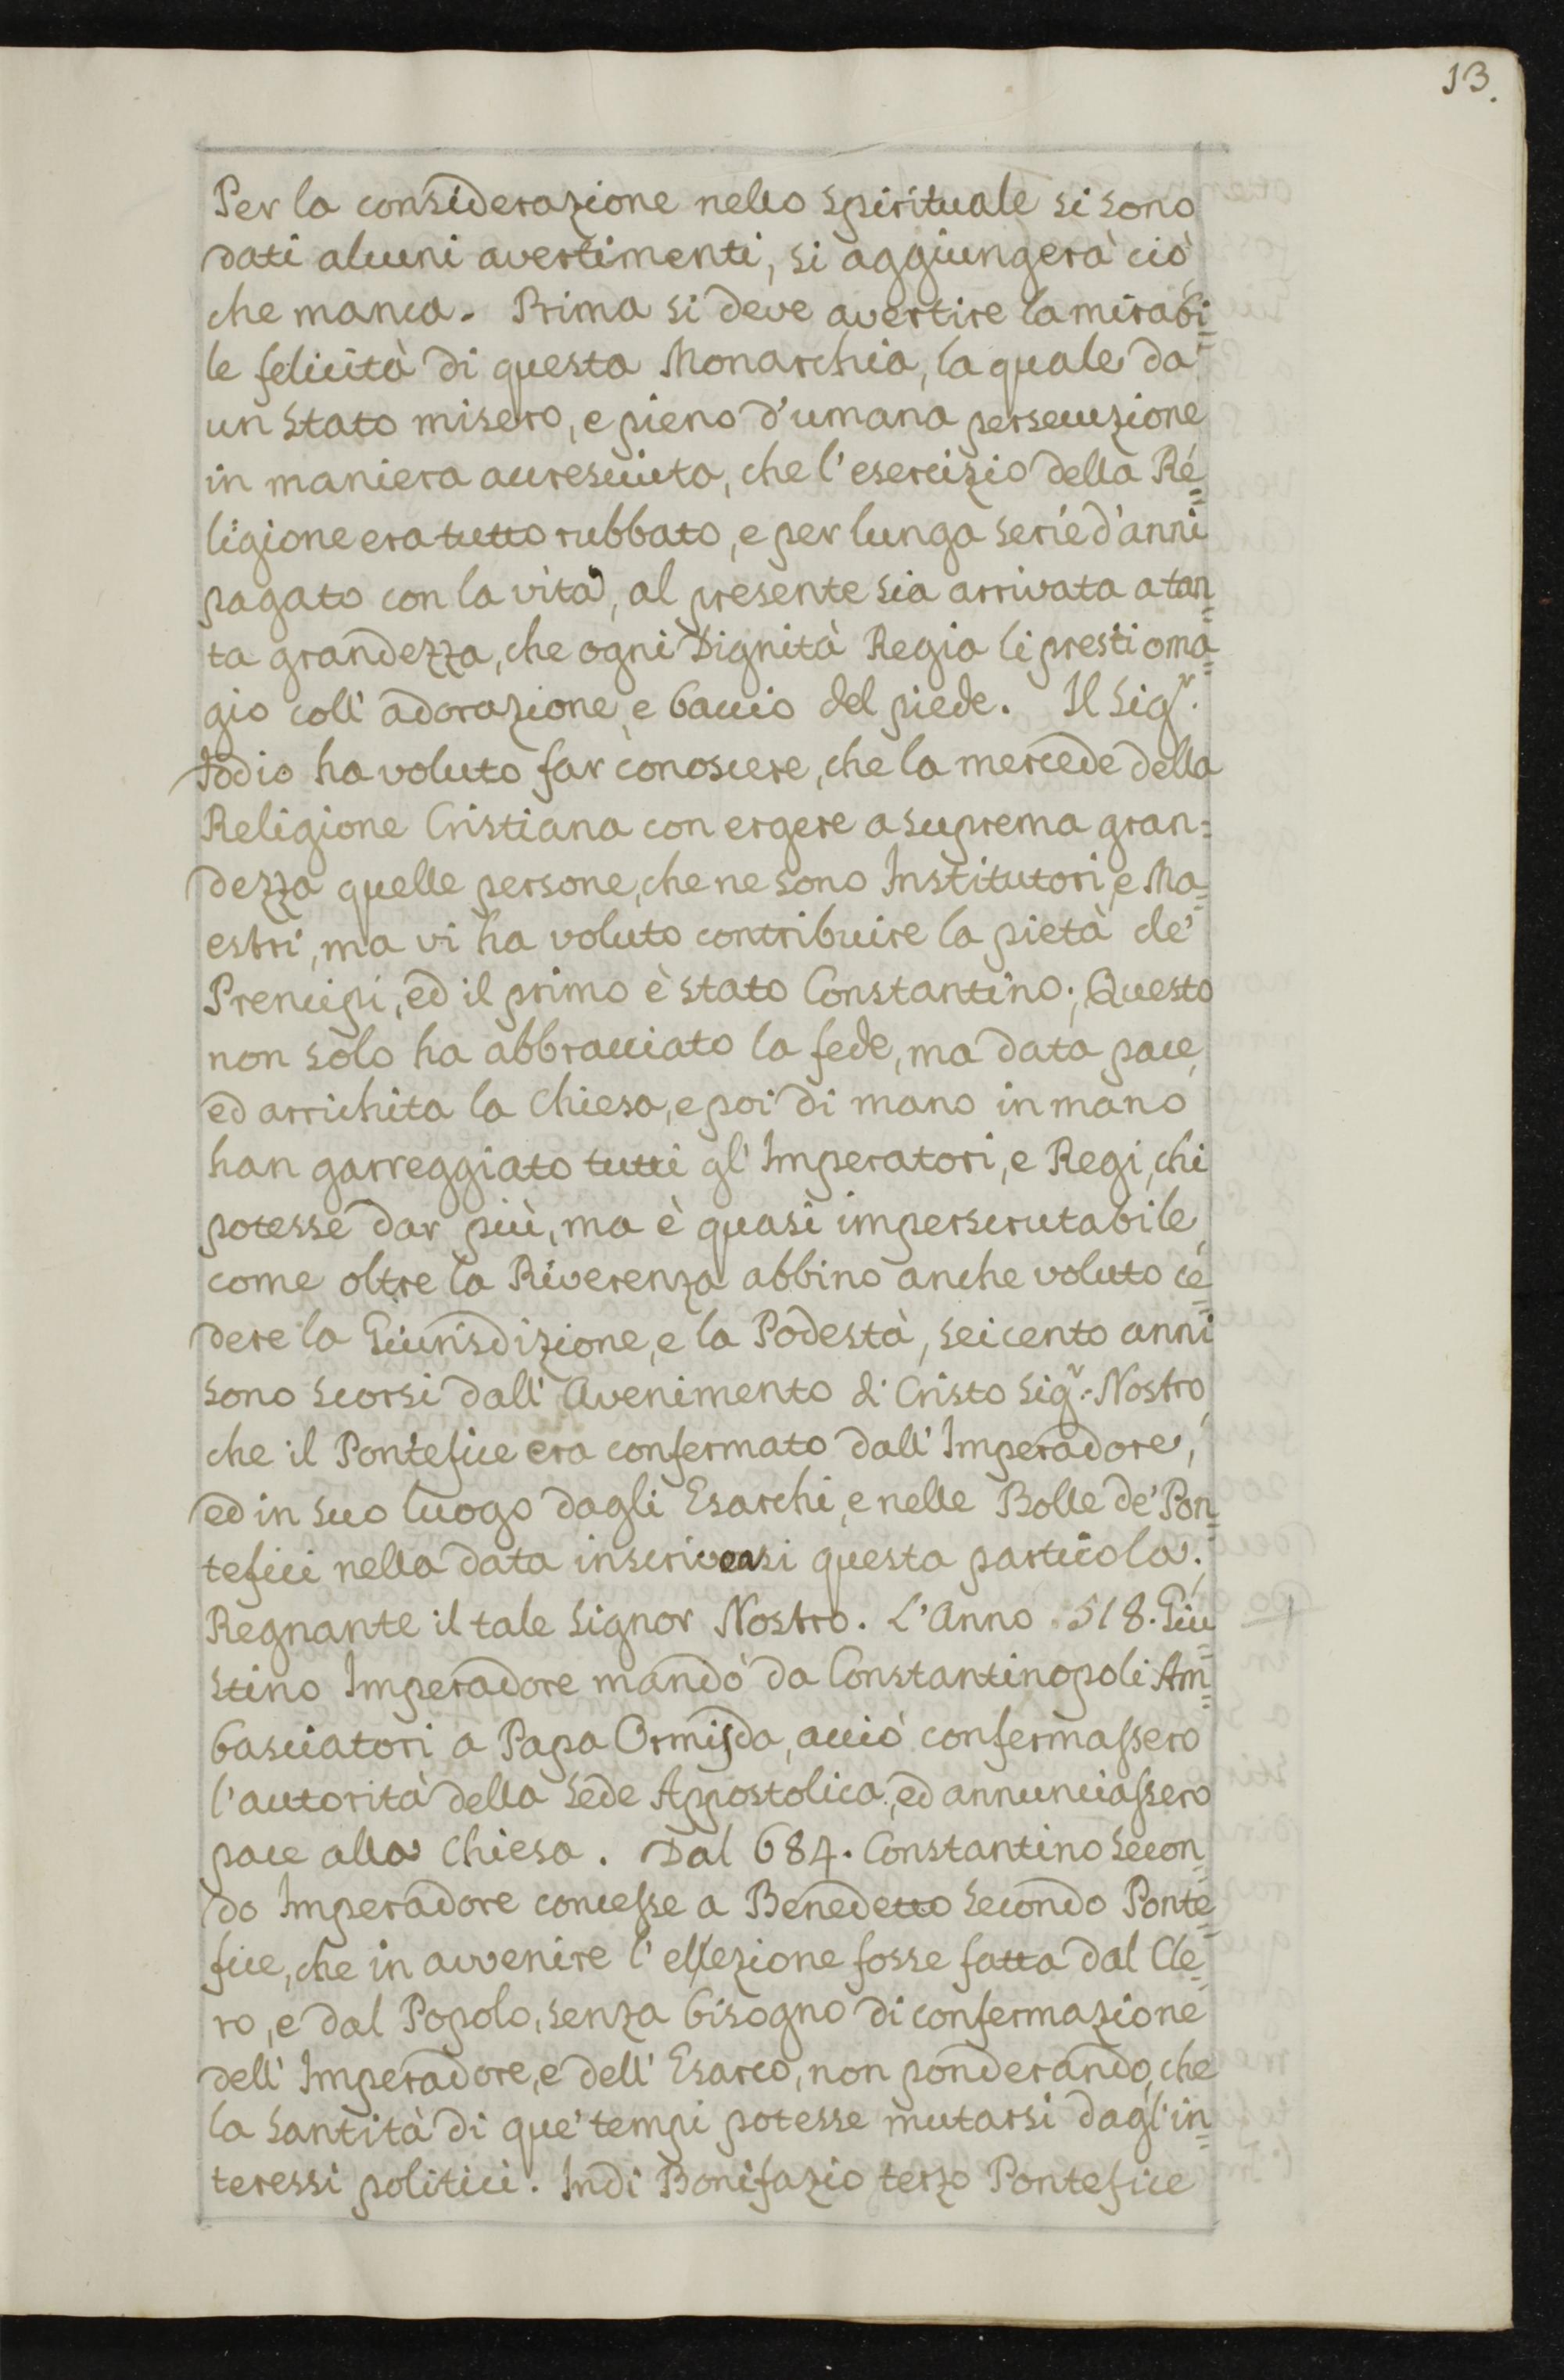 13.
Per la considerazione nello Spirituale si sono
dati alcuni avertimenti, si aggiungerà ciò
che manca. Prima si deve avertire la mirabi=
le felicità di questa Monarchia, la quale da
un Stato misero, e pieno d'umana persecuzione
in maniera accresciuta, che l'esercizio della Re=
ligione era tutto rubbato, e per lunga serie d'anni
pagato con la vita, al presente sia arrivata a tan=
ta grandezza, che ogni Dignità Regia li presti oma=
gio coll' adorazione, e baccio del piede. Il Sigr.
Iddio ha voluto far conoscere, che la mercede della
Religione Cristiana con ergere a suprema gran=
dezza quelle persone, che ne sono Institutori, e Ma=
estri, ma vi ha voluto contribuire la pietà de'
Prencipi, ed il primo è stato Constantino; Questo
non solo ha abbracciato la fede, ma data pace,
ed arrichita la Chiesa, e poi di mano in mano
han garreggiato tutti gl' Imperatori, e Regi, chi
potesse dar più, ma è quasi imperscrutabile,
come oltre la Riverenza abbino anche voluto ce=
dere la Giurisdizione, e la Podestà, seicento anni
sono scorsi dall' Avenimento di Cristo Sigr. Nostro,
che il Pontefice era confermato dall' Imperadore,
ed in suo luogo dagli Esarchi, e nelle Bolle de' Pon=
tefici nella data inscriveasi questa particola;
Regnante il tale Signor Nostro. L'Anno 518. Giu=
stino Imperadore mandò da Constantinopoli Am=
basciatori a Papa Ormisda, acciò confermassero
l'autorità della Sede Appostolica, ed annunciassero
pace alla Chiesa. Dal 684. Constantino Secon=
do Imperadore concesse a Benedetto Secondo Ponte=
fice, che in avvenire l' ellezione fosse fatta dal Cle=
ro, e dal Popolo, senza bisogno di confermazione
dell' Imperadore, e dell' Esarco, non ponderando, che
la Santità di que' tempi potesse mutarsi dagl' in=
teressi politici. Indi Bonifazio terzo Pontefice